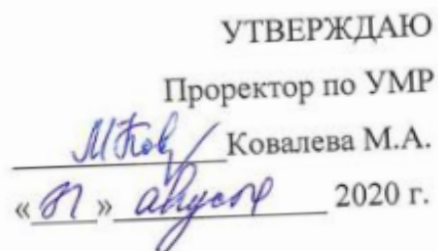 УТВЕРЖДАЮ
Проректор по УМР
Ковалева М.А.
« » августа 2020 г.